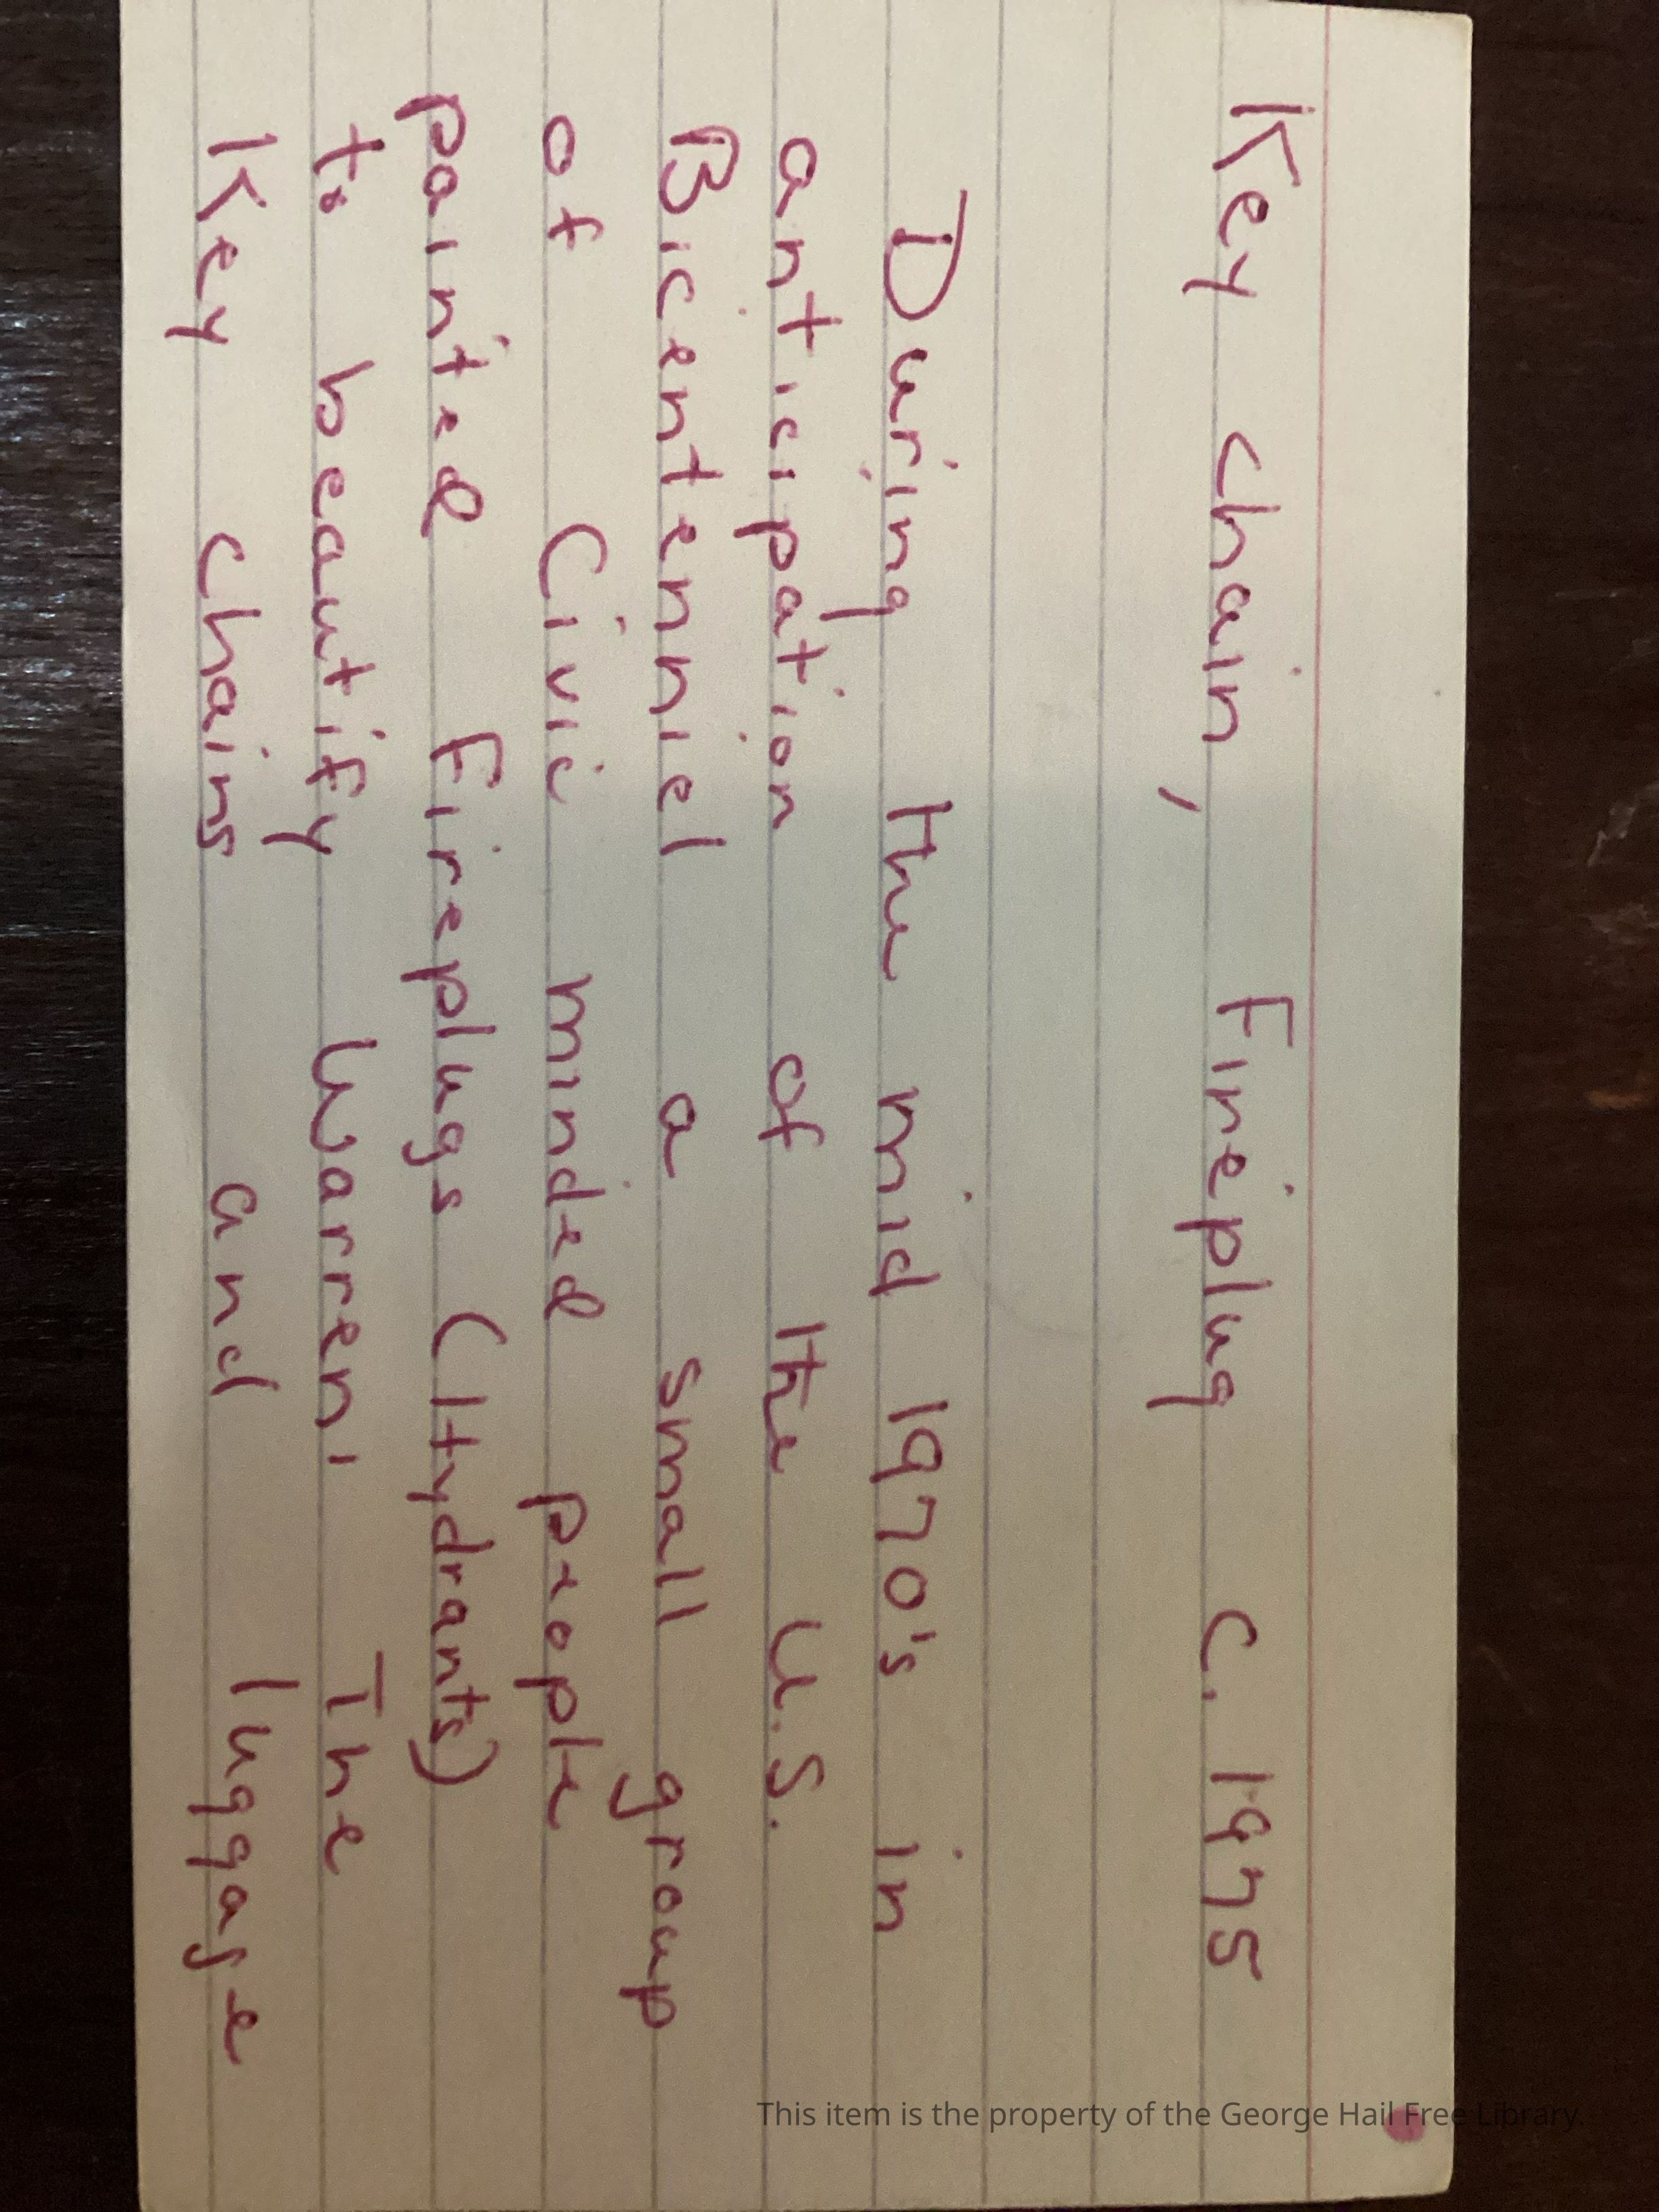 Key chain, Fireplug C. 1975
During the mid 1970's in
anticipation of the U.S.
Bicentenniel a small group
of Civic minded people
painted Fireplugs (Hydrants)
to beautify Warren. The
Key chains and luggage
This item is the property of the George Hail Free Library.